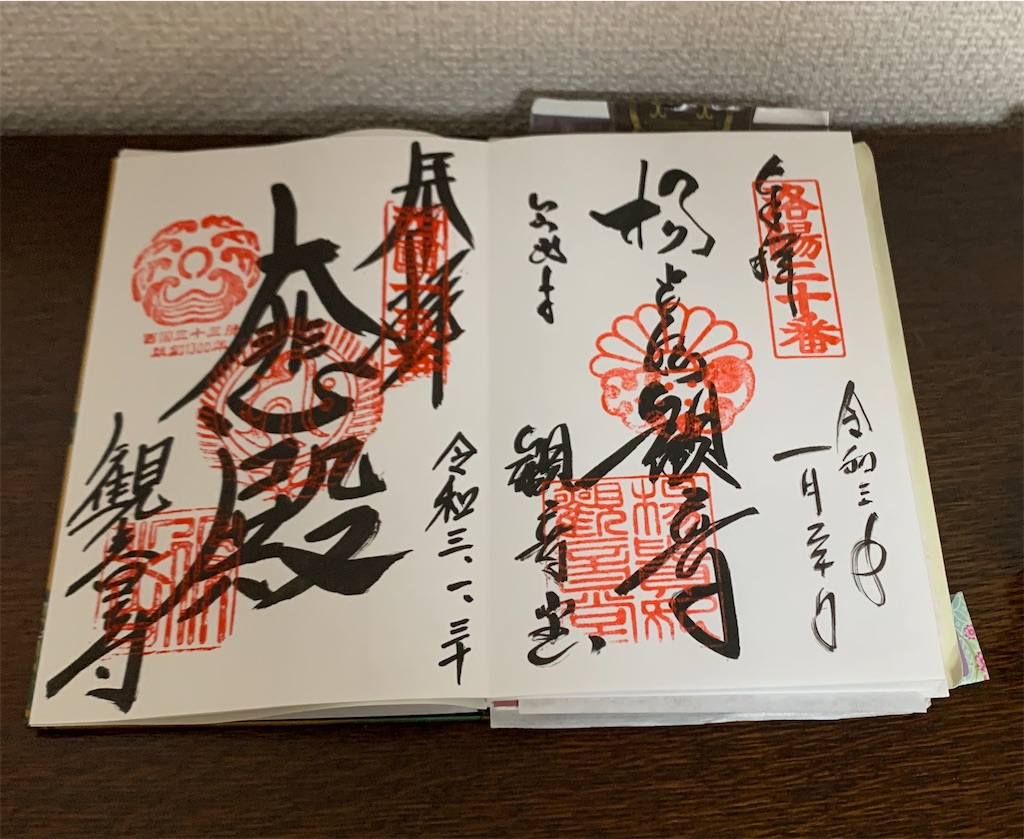 奉拝
洛陽二十番
令和三年
一月三十日
楊貴妃観音
観音堂
楊貴妃観音堂
奉拝
西国十五番
令和三、一、三十
大悲殿
観音寺
西国三十三所
草創1300年